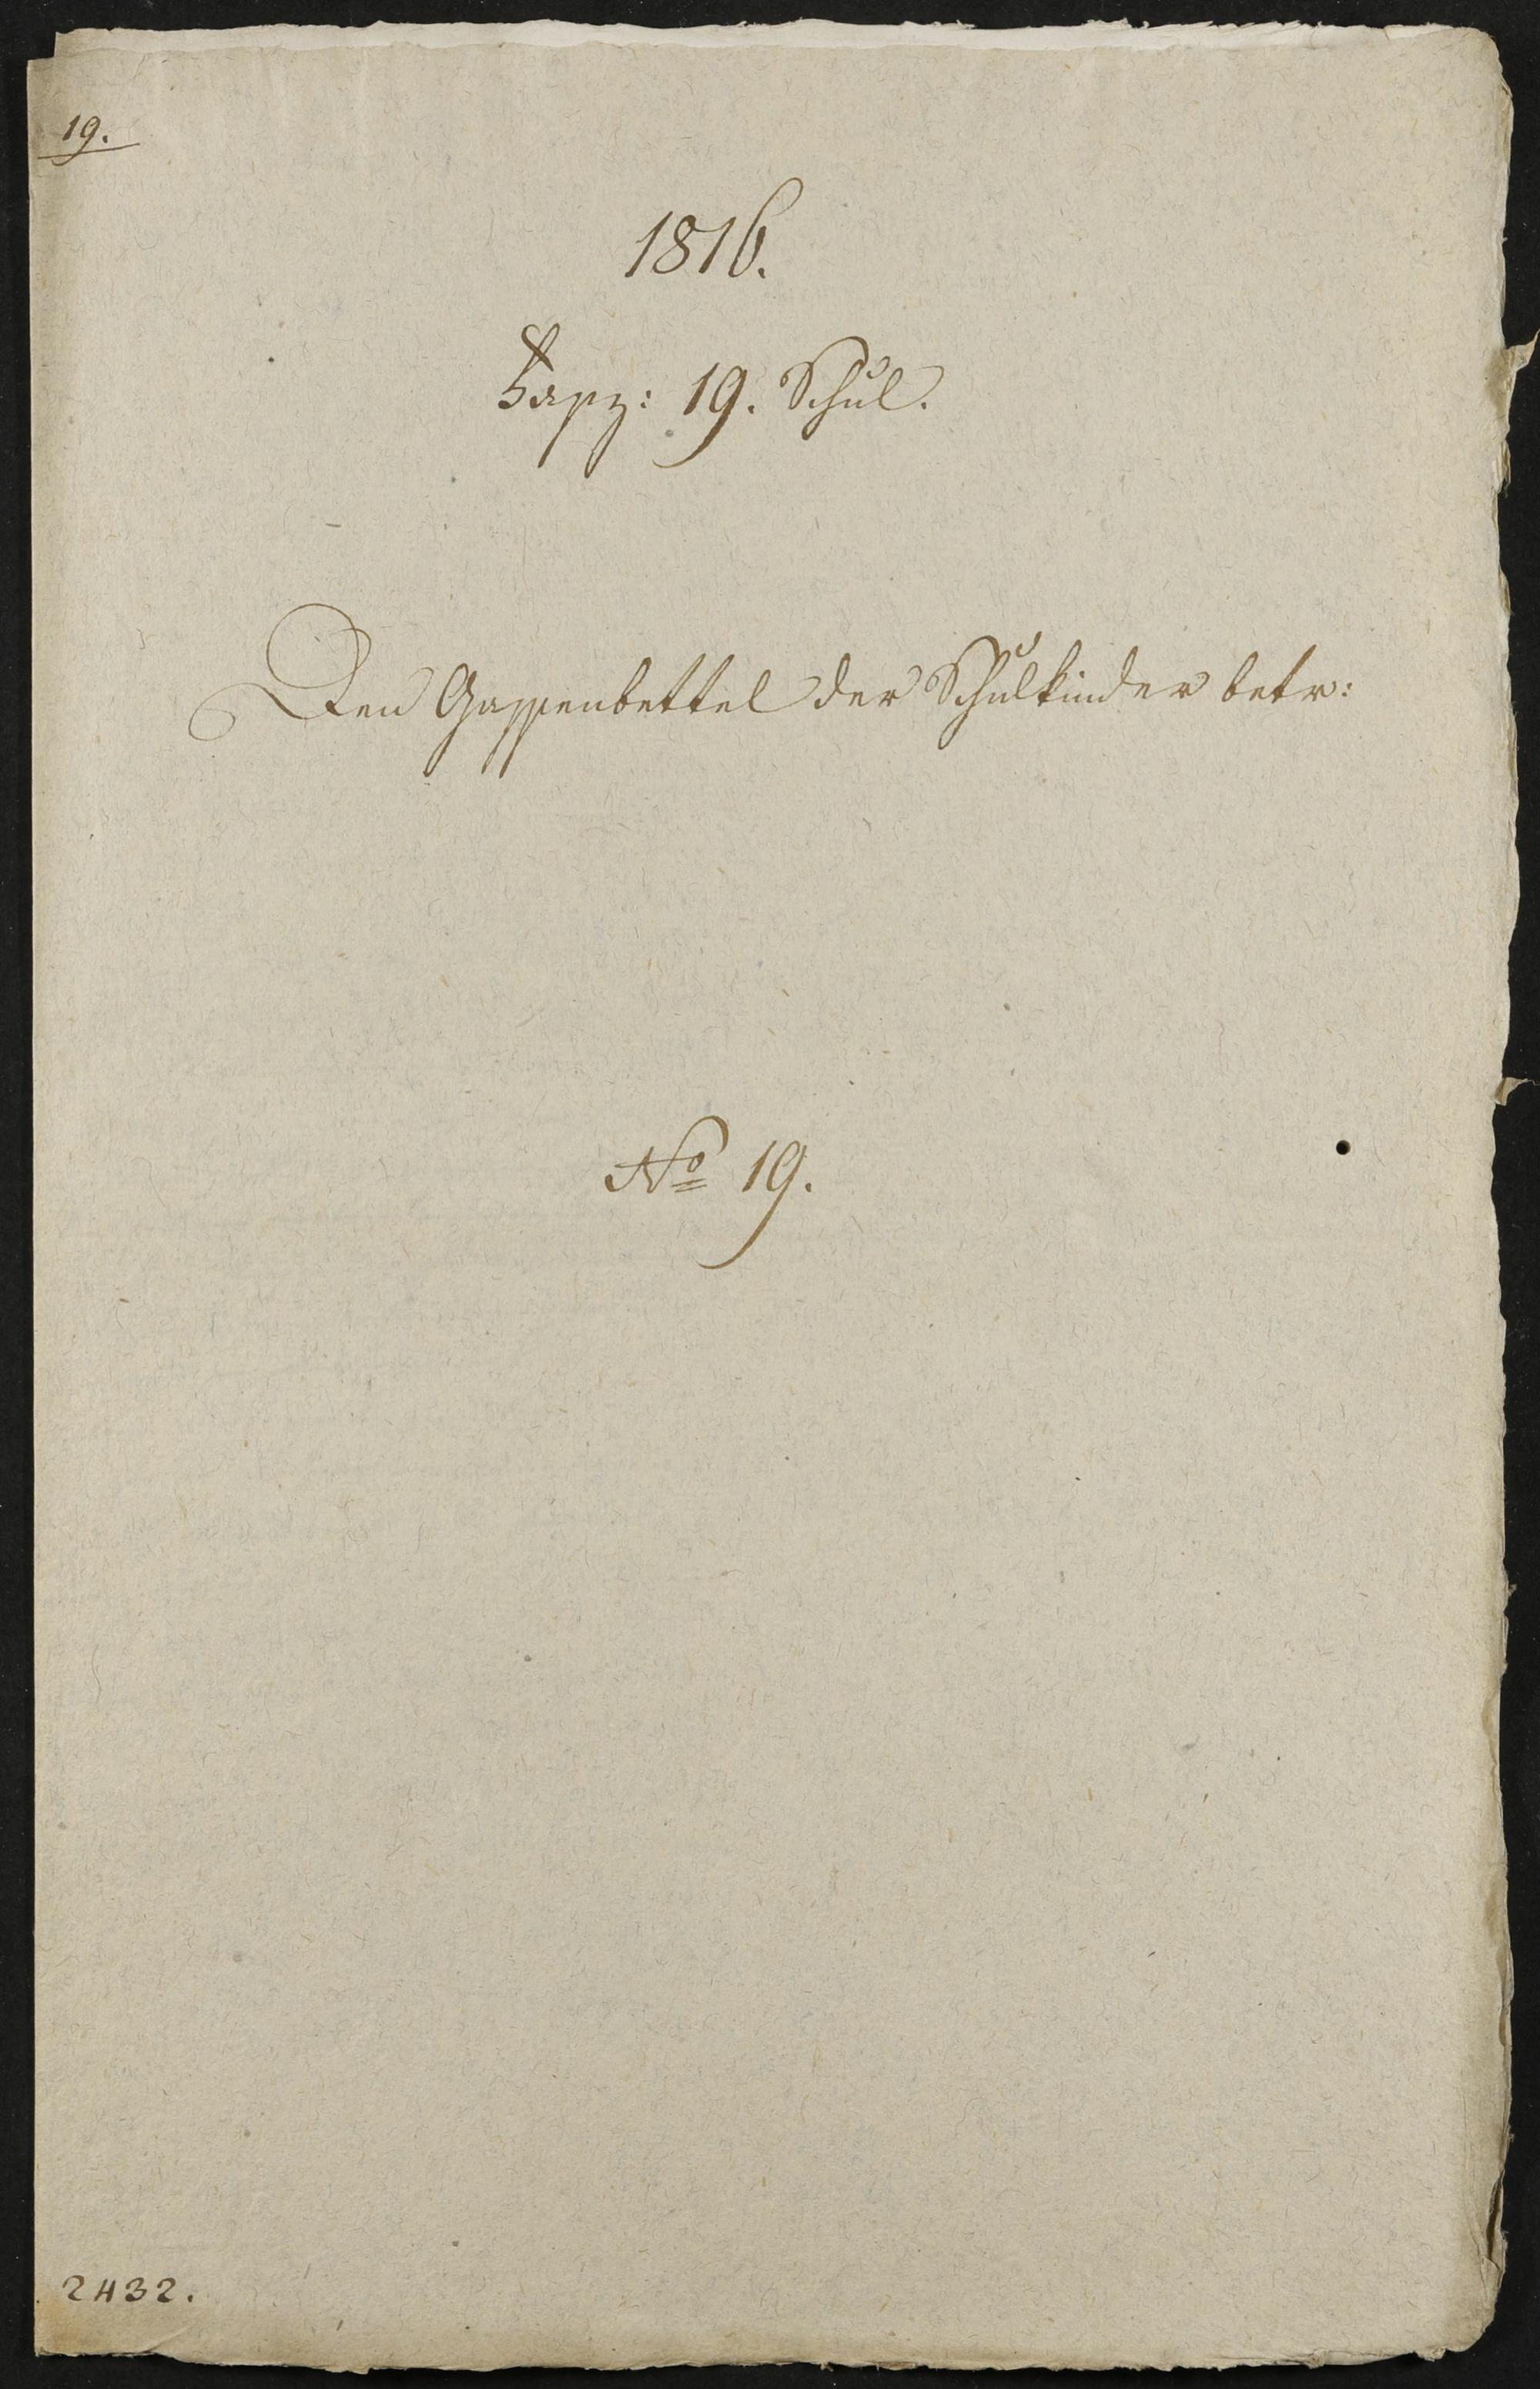 19.
1816.
Fasz: 19. Schul.
Den Gassenbettel der Schulkinder betr:
No 19.
2432.